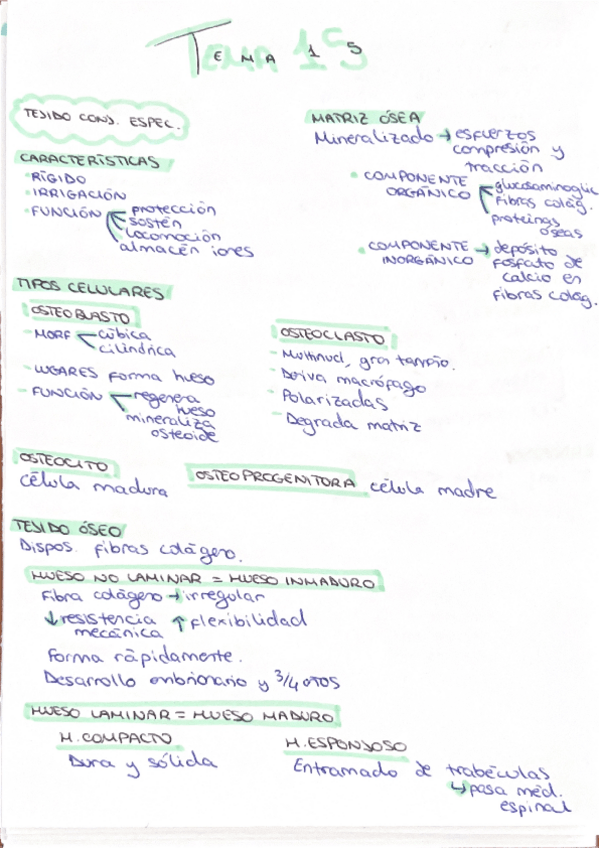 TEMA 15
TEJIDO CONJ. ESPEC.
CARACTERÍSTICAS
· RÍGIDO
· IRRIGACIÓN
· FUNCIÓN protección
sostén
locomoción
almacén iones
MATRIZ ÓSEA
Mineralizado → esfuerzos
compresión y
tracción
· COMPONENTE
ORGÁNICO glucosaminoglic
Fibras colág.
proteinas
óseas
· COMPONENTE → depósito
INORGÁNICO fosfato de
calcio en
fibras colág.
TIPOS CELULARES
OSTEOBLASTO
- MORF cúbica
cilíndrica
- LUGARES forma hueso
- FUNCIÓN regenera
hueso
mineraliza
osteoide
OSTEOCLASTO
- Multinucl, gran tamaño.
- Deriva macrófago
- Polarizadas
- Degrada matriz
OSTEOCITO
célula madura
OSTEOPROGENITORA célula madre
TEJIDO ÓSEO
Dispos. fibras colágeno.
HUESO NO LAMINAR = HUESO INMADURO
Fibra colágeno → irregular
↓ resistencia ↑ flexibilidad
mecánica
Forma rápidamente.
Desarrollo embrionario y 3/4 años
HUESO LAMINAR = HUESO MADURO
H. COMPACTO
Dura y sólida
H. ESPONJOSO
Entramado de trabéculas
↳ pasa méd.
espinal